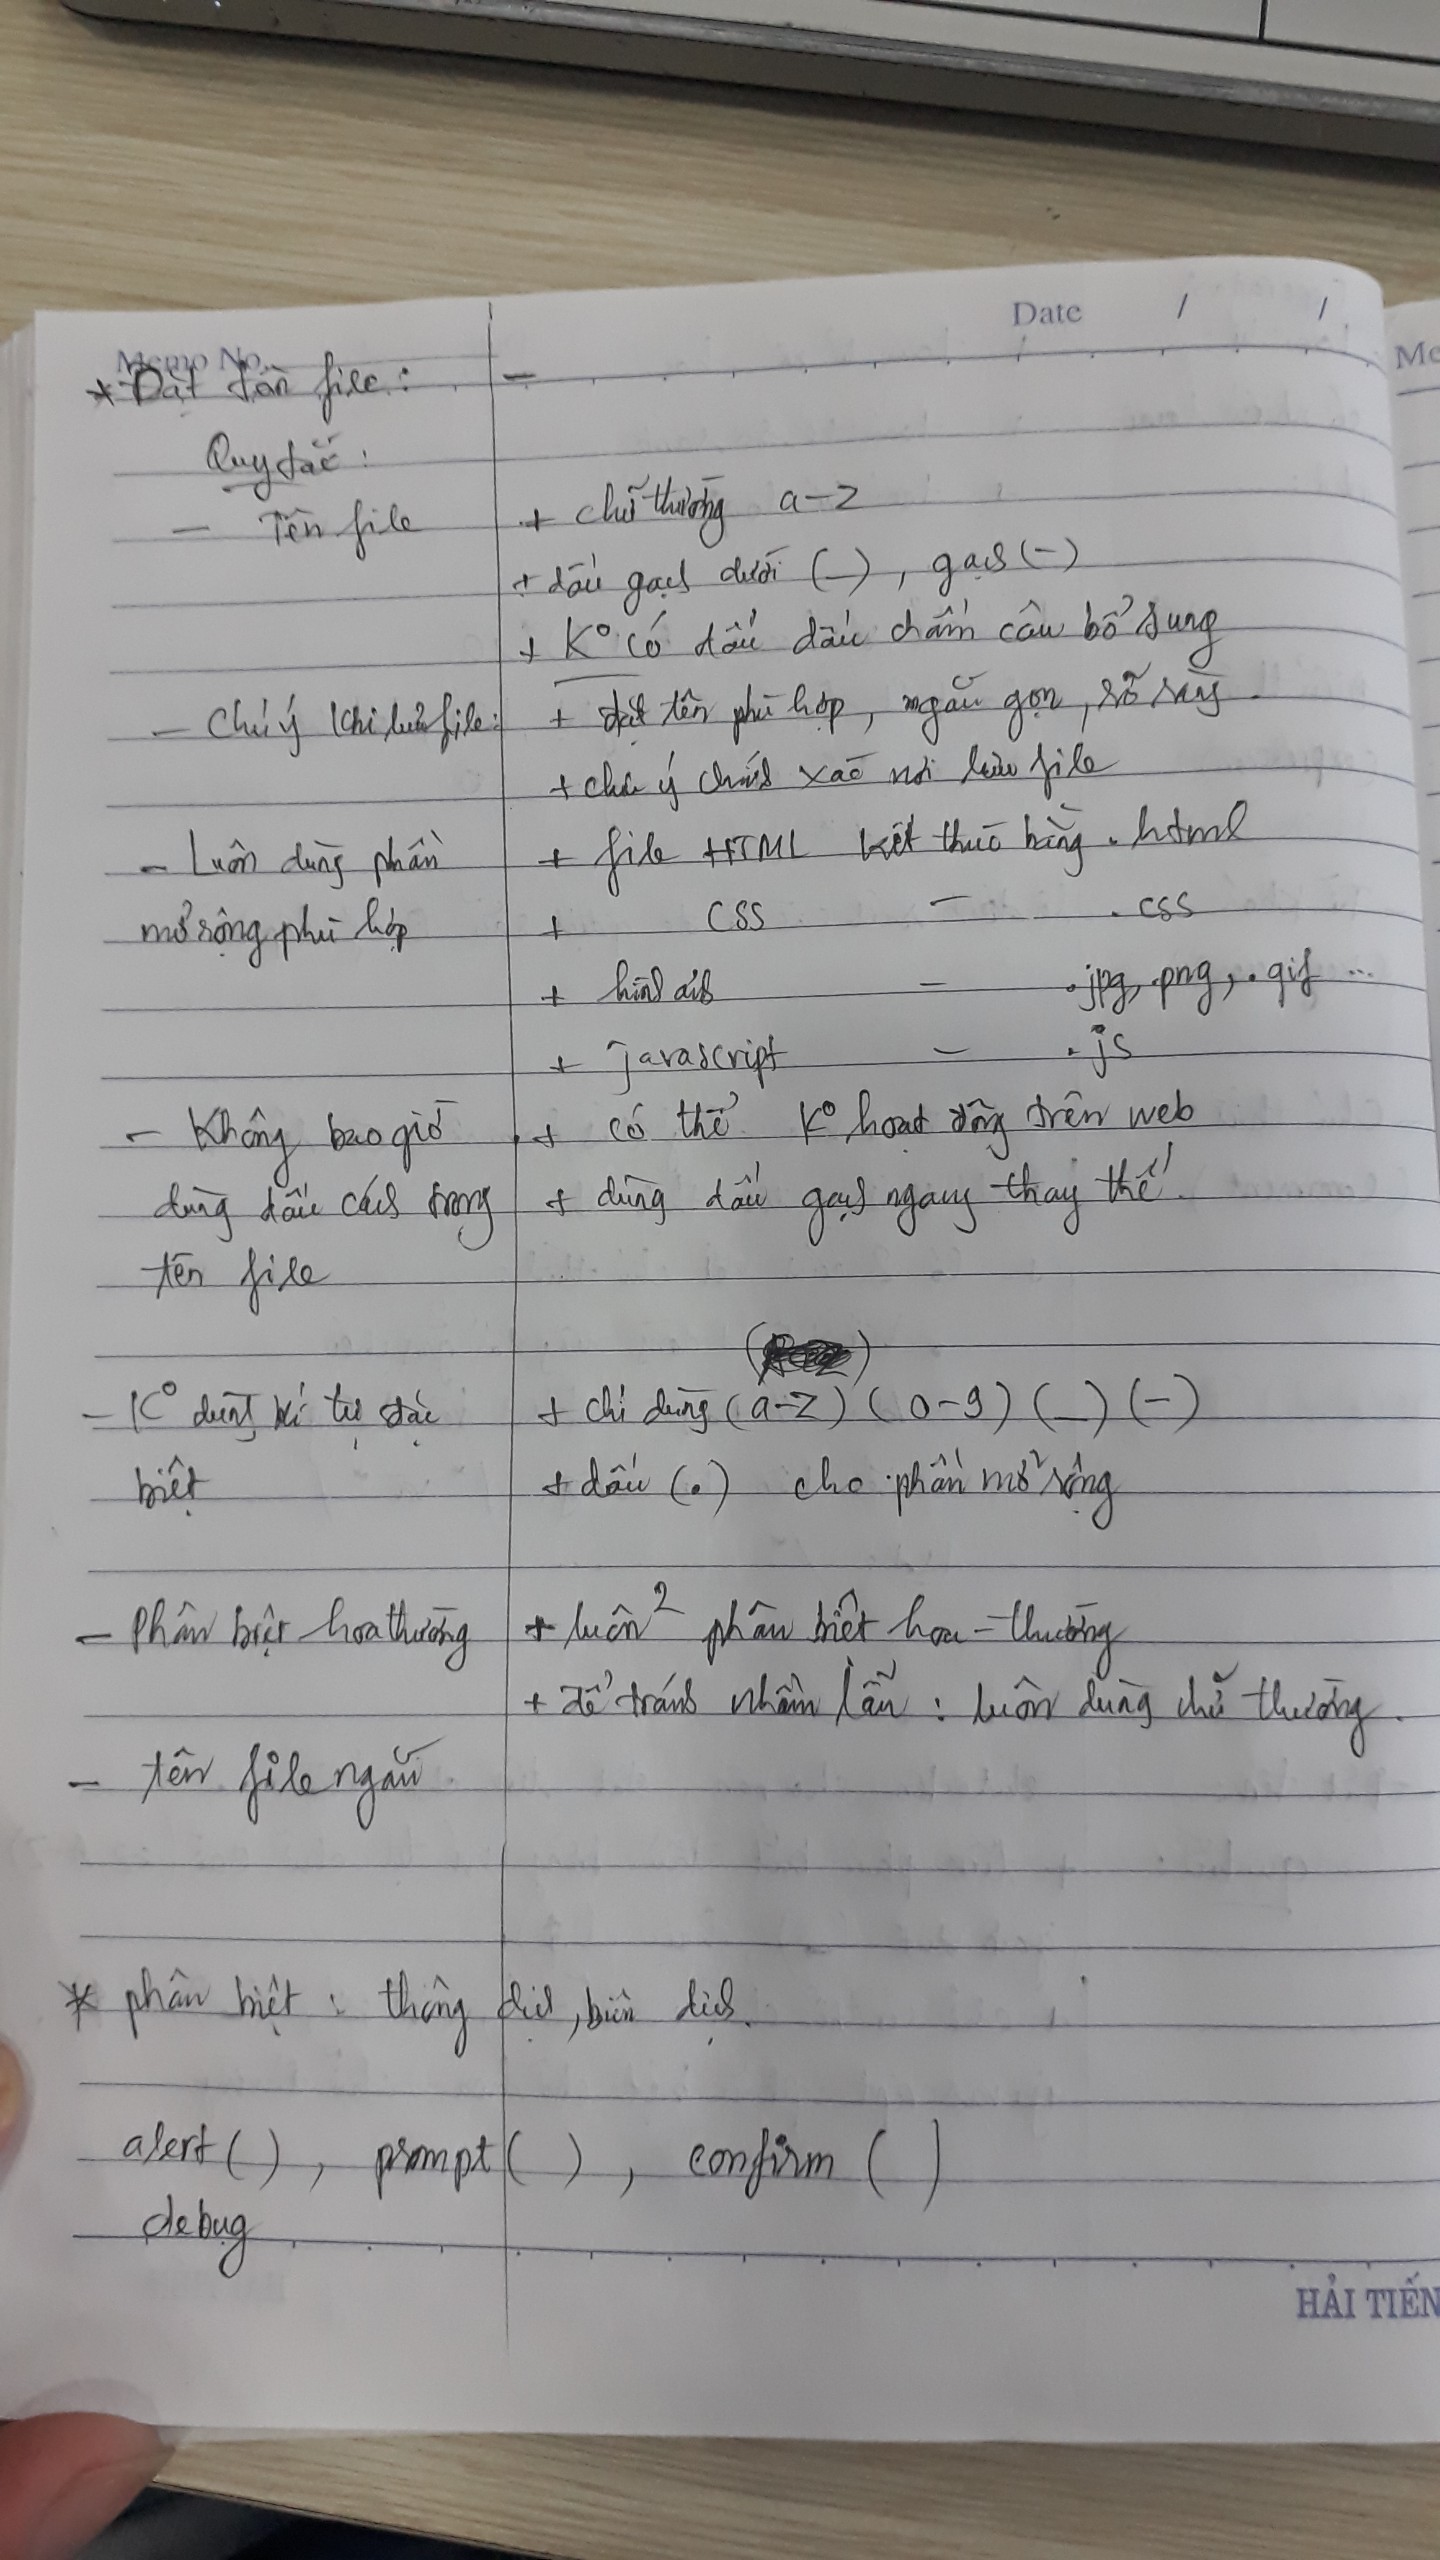 Date / /
Memo No. Me
* Đặt tên file: –
Quy tắc:
– Tên file + chữ thường a–z
+ dấu gạch dưới (_), gạch (-)
+ K° có dấu dấu chấm câu bổ sung
– Chú ý khi lưu file: + đặt tên phù hợp, ngắn gọn, rõ ràng.
+ chú ý chính xác nơi lưu file
– Luôn dùng phần + file HTML kết thúc bằng .html
mở rộng phù hợp + CSS – .css
+ hình ảnh – .jpg, .png, .gif ...
+ javascript – .js
– Không bao giờ + có thể K° hoạt động trên web
dùng dấu cách trong + dùng dấu gạch ngang thay thế
tên file
– K° dùng kí tự đặc + chỉ dùng (a-z) (0-9) (_) (-)
biệt + dấu (.) cho phần mở rộng
– Phân biệt hoa thường + luôn² phân biệt hoa – thường
+ để tránh nhầm lẫn: luôn dùng chữ thường.
– tên file ngắn
* phân biệt: thông dịch, biên dịch.
alert( ), prompt( ), confirm ( )
debug
HẢI TIẾN